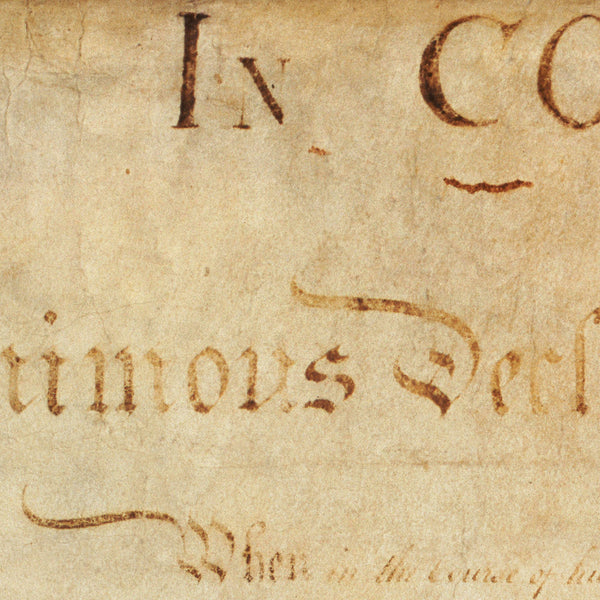 IN CO
nimous Decl
When in the Course of hu